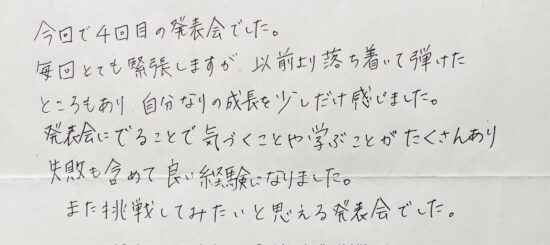 今回で4回目の発表会でした。
毎回とても緊張しますが、以前より落ち着いて弾けた
ところもあり、自分なりの成長を少しだけ感じました。
発表会にでることで気づくことや学ぶことがたくさんあり
失敗も含めて良い経験になりました。
また挑戦してみたいと思える発表会でした。